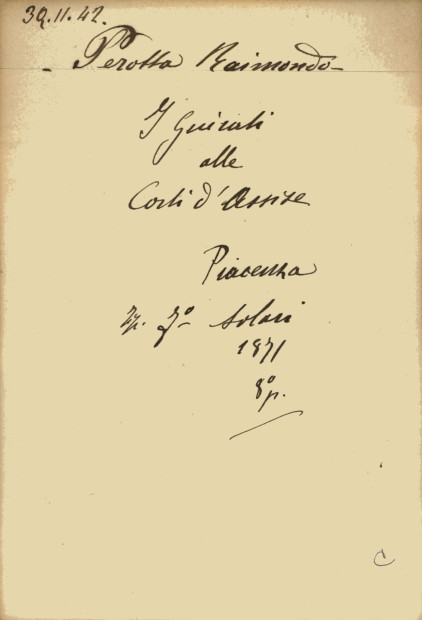 39.11.42.
Perotta Raimondo
I Giurati
alle
Corti d'Assise
Piacenza
Tip. Fº Solari
1871
8º p.
C